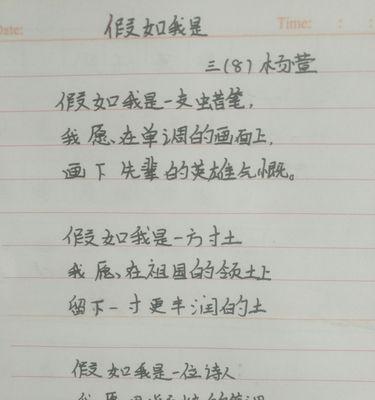 Date:
Time: : :
假如我是
三(8) 杨萱
假如我是一支蜡笔,
我愿在单调的画面上,
画下先辈的英雄气慨。
假如我是一方寸土
我愿、在祖国的领土上
留下一寸更丰润的土
假如我是一位诗人
我愿用